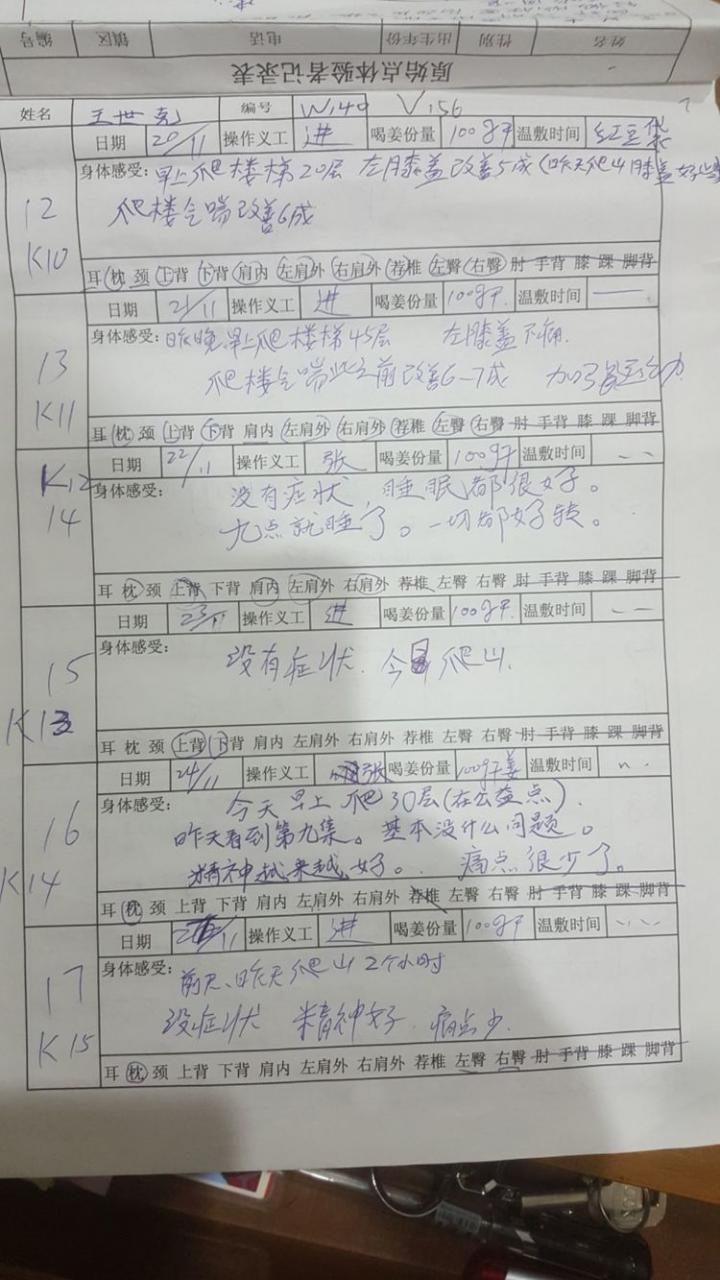 编号 镇区 电话 出生年份 性别 姓名
原始点体验者记录表
姓名 王世克 编号 W140 V156
日期 20/11 操作义工 进 喝姜份量 100g干 温敷时间 红豆袋
12
K10
身体感受: 早上爬楼梯20层 左膝盖改善5成(昨天爬山膝盖好些
爬楼气喘改善6成
耳 枕 颈 上背 下背 肩内 左肩外 右肩外 荐椎 左臀 右臀 肘 手背 膝 踝 脚背
日期 21/11 操作义工 进 喝姜份量 100g干. 温敷时间 —
13
K11
身体感受: 昨晚.早上爬楼梯45层 左膝盖不痛.
爬楼气喘比之前改善6-7成
耳 枕 颈 上背 下背 肩内 左肩外 右肩外 荐椎 左臀 右臀 肘 手背 膝 踝 脚背
日期 22/11 操作义工 张 喝姜份量 100g干 温敷时间 、、
K12
14
身体感受: 没有症状,睡眠都很好。
九点就睡了。一切都好转。
耳 枕 颈 上背 下背 肩内 左肩外 右肩外 荐椎 左臀 右臀 肘 手背 膝 踝 脚背
日期 23/11 操作义工 进 喝姜份量 100g干 温敷时间 — —
15
K13
身体感受: 没有症状.今 爬山.
耳 枕 颈 上背 下背 肩内 左肩外 右肩外 荐椎 左臀 右臀 肘 手背 膝 踝 脚背
日期 24/11 操作义工 张 喝姜份量 100g干姜 温敷时间
16
K14
身体感受: 今天早上爬30层(在公益点).
昨天看到第九集。基本没什么问题。
精神越来越好。. 痛点很少了。
耳 枕 颈 上背 下背 肩内 左肩外 右肩外 荐椎 左臀 右臀 肘 手背 膝 踝 脚背
日期 /11 操作义工 进 喝姜份量 100g干 温敷时间 、、、
17
K15
身体感受: 前天、昨天爬山2个小时
没症状 精神好. 痛点少.
耳 枕 颈 上背 下背 肩内 左肩外 右肩外 荐椎 左臀 右臀 肘 手背 膝 踝 脚背